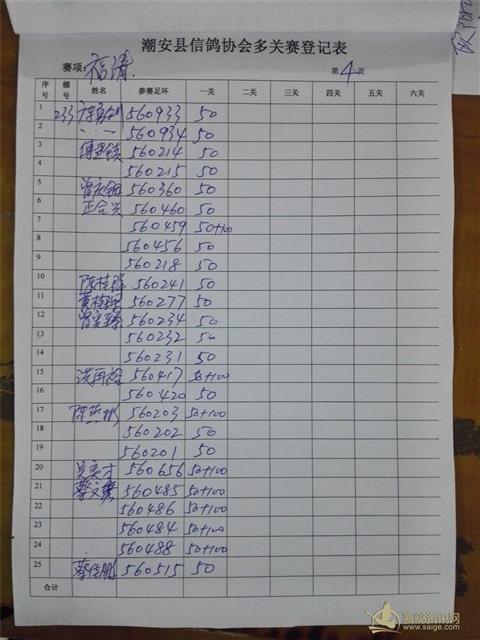 潮安县信鸽协会多关赛登记表
赛项: 福清 第 4 页
序号 棚号 姓名 参赛足环 一关 二关 三关 四关 五关 六关
1 233 560933 50
2 560934 50
3 560214 50
4 560215 50
5 560360 50
6 正合兴 560460 50
7 560459 50+100
8 560456 50
9 560218 50
10 陈桂群 560241 50
11 560277 50
12 560234 50
13 560232 50
14 560231 50
15 560417 50+100
16 560420 50
17 陈燕彬 560203 50+100
18 560202 50
19 560201 50
20 吴奕才 560656 50+100
21 蔡文 560485 50+100
22 560486 50+100
23 560484 50+100
24 560488 50+100
25 蔡佳鹏 560515 50
合计
www.saige.com